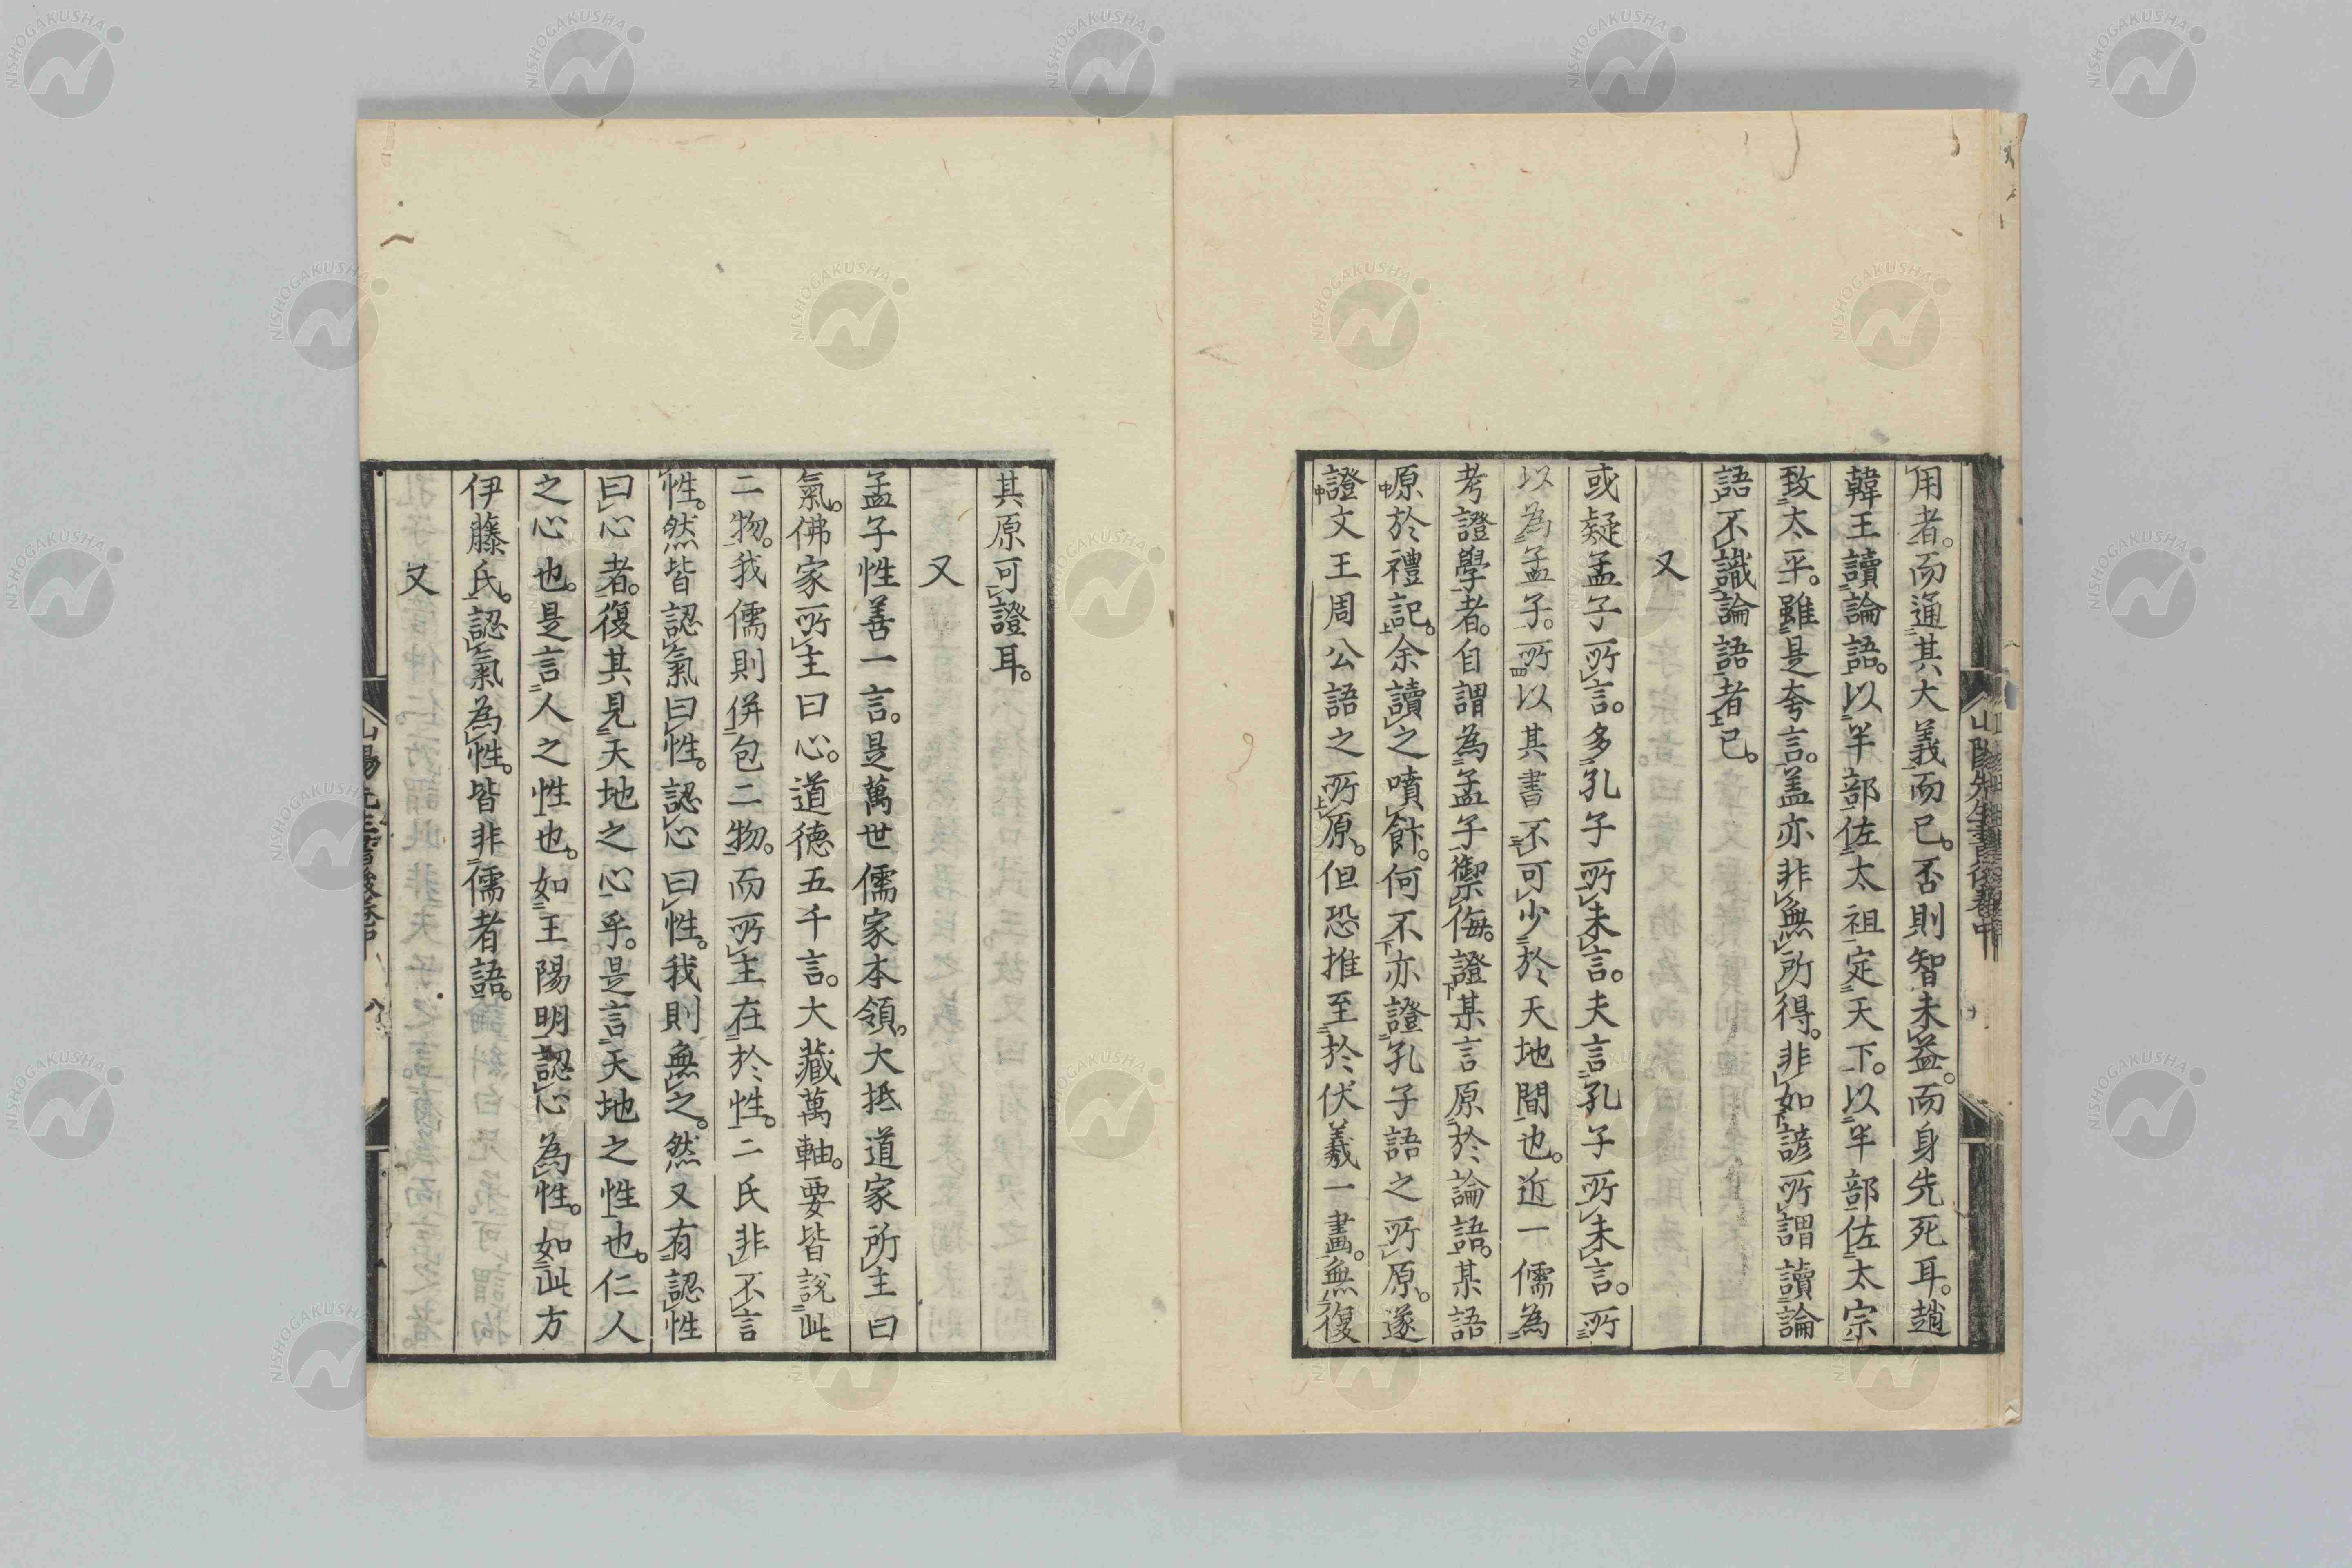 用者。而通其大義而已。否則智未益。而身先死耳。趙
韓王讀論語。以半部佐太祖定天下。以半部佐太宗
致太平。雖是夸言。蓋亦非無所得。非如諺所謂讀論
語不識論語者已。
又
或疑孟子所言。多孔子所未言。夫言孔子所未言。所
以為孟子。所以其書不可少於天地間也。近一儒為
考證學者。自謂為孟子禦侮。證某言原於論語。某語
原於禮記。余讀之噴飰。何不亦證孔子語之所原。遂
證文王周公語之所原。但恐推至於伏羲一畫。無復
其原可證耳。
又
孟子性善一言。是萬世儒家本領。大抵道家所主曰
氣。佛家所主曰心。道德五千言。大藏萬軸。要皆說此
二物。我儒則併包二物。而所主在於性。二氏非不言
性。然皆認氣曰性。認心曰性。我則無之。然又有認性
曰心者。復其見天地之心乎。是言天地之性也。仁人
之心也。是言人之性也。如王陽明認心為性。如此方
伊藤氏。認氣為性。皆非儒者語。
又
NISHOGAKUSHA